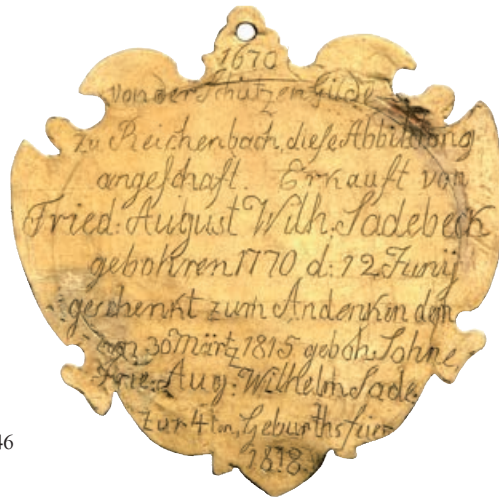 1670
von der Schützen Gilde
zu Reichenbach, diese Abbildung
angeschaft. Erkauft von
Fried: August Wilh. Sadebeck
gebohren 1770 d: 12 Junÿ
geschenkt zum Andenken dem
am 30 Märtz 1815 geboh. Sohne
Frie: Aug: Wilhelm Sade.
zur 4ten, Geburthsfeier
1818.
46